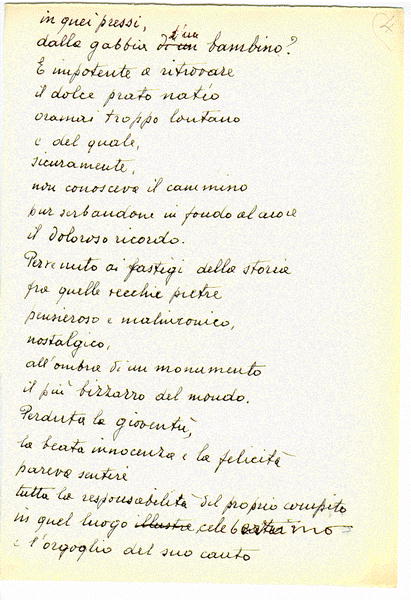 4
in quei pressi,
dalla gabbia di un d'un bambino?
E impotente a ritrovare
il dolce prato natío
oramai troppo lontano
e del quale,
sicuramente,
non conosceva il cammino
pur serbandone in fondo al cuore
il doloroso ricordo.
Pervenuto ai fastigi della storia
fra quelle vecchie pietre
pensieroso e malinconico,
nostalgico,
all'ombra di un monumento
il più bizzarro del mondo.
Perduta la gioventù,
la beata innocenza e la felicità
pareva sentire
tutta la responsabilità del proprio compito
in quel luogo illustre celeberrimo
e l'orgoglio del suo canto